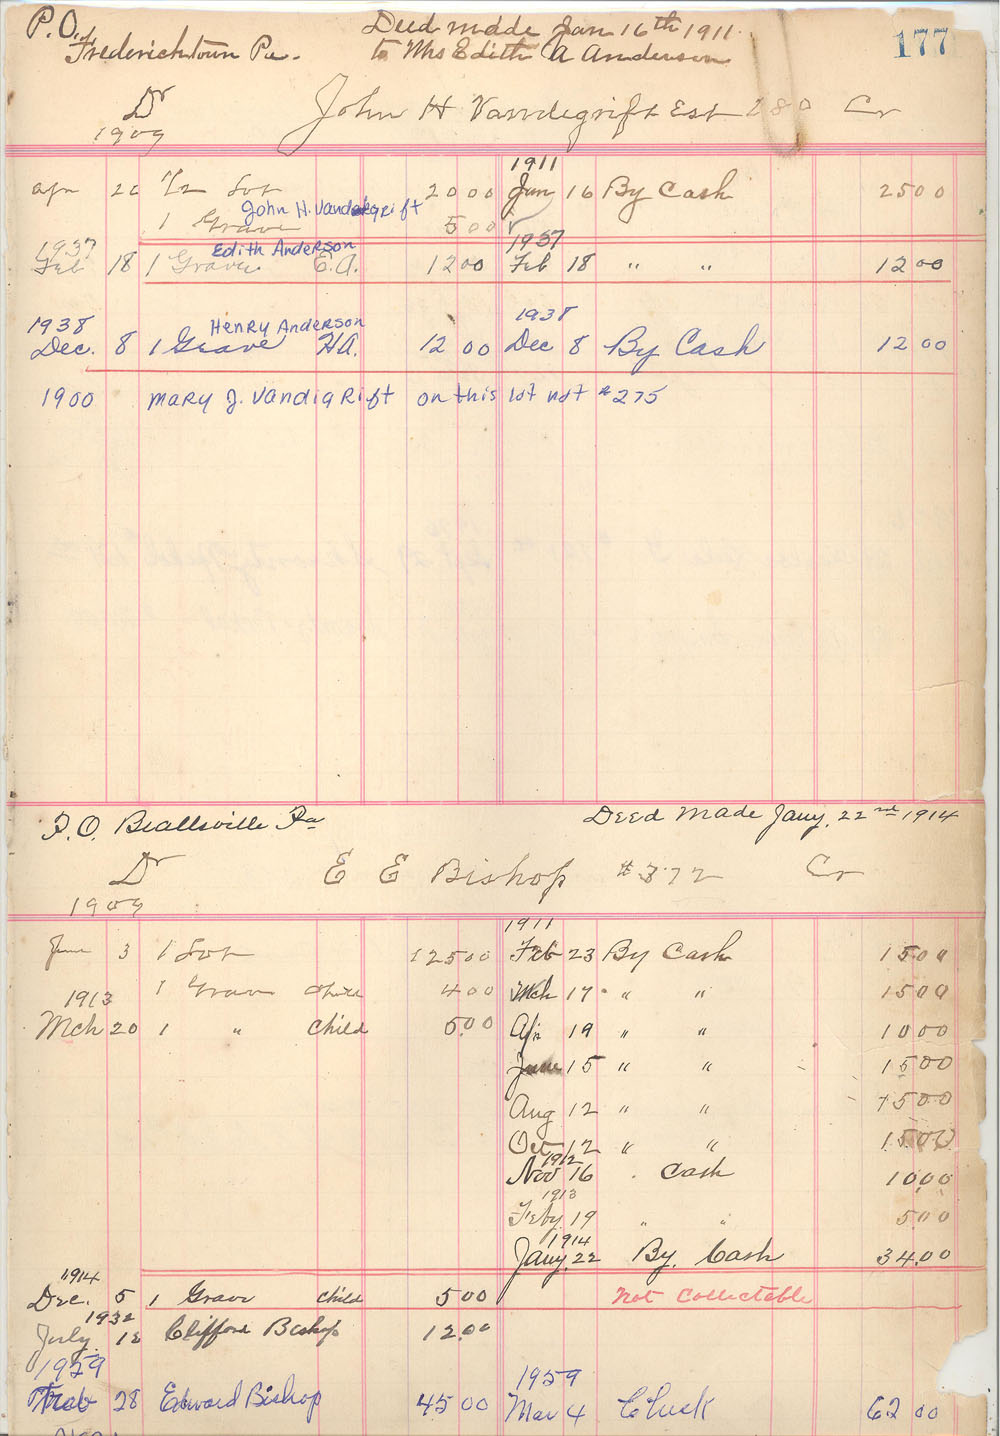 P.O. Deed made Jan 16th 1911
Fredericktown Pa. to Mrs Edith A Anderson 177
Dr John H Vandegrift Est 280 Cr
1909
1911
Apr 20 1/2 Lot 20 00 Jan 16 By Cash 25 00
John H. Vandegrift
1 Grave 5 00
1937 Edith Anderson 1937
Feb 18 1 Grave E.A. 12 00 Feb 18 " " 12 00
1938 Henry Anderson 1938
Dec. 8 1 Grave H.A. 12 00 Dec 8 By Cash 12 00
1900 Mary J. Vandigrift on this lot not #275
P.O. Beallsville Pa Deed Made Jany. 22nd 1914
Dr E E Bishop #372 Cr
1909
1911
June 3 1 Lot 125 00 Feb 23 By Cash 15 00
1 Grave Child 4 00 Mch 17 " " 15 00
1913
Mch 20 1 " Child 5.00 Apr 19 " " 10 00
June 15 " " 15 00
Aug 12 " " 15 00
Oct 12 " " 15 00
1912
Nov 16 . Cash 10.00
1913
Feby 19 " " 5 00
1914
Jany. 22 By. Cash 34.00
1914
Dec. 5 1 Grave Child 5 00 Not Collectable
1932
July 12 Clifford Bishop 12.00
1959 1959
28 Edward Bishop 45 00 Mar 4 Check 62 00